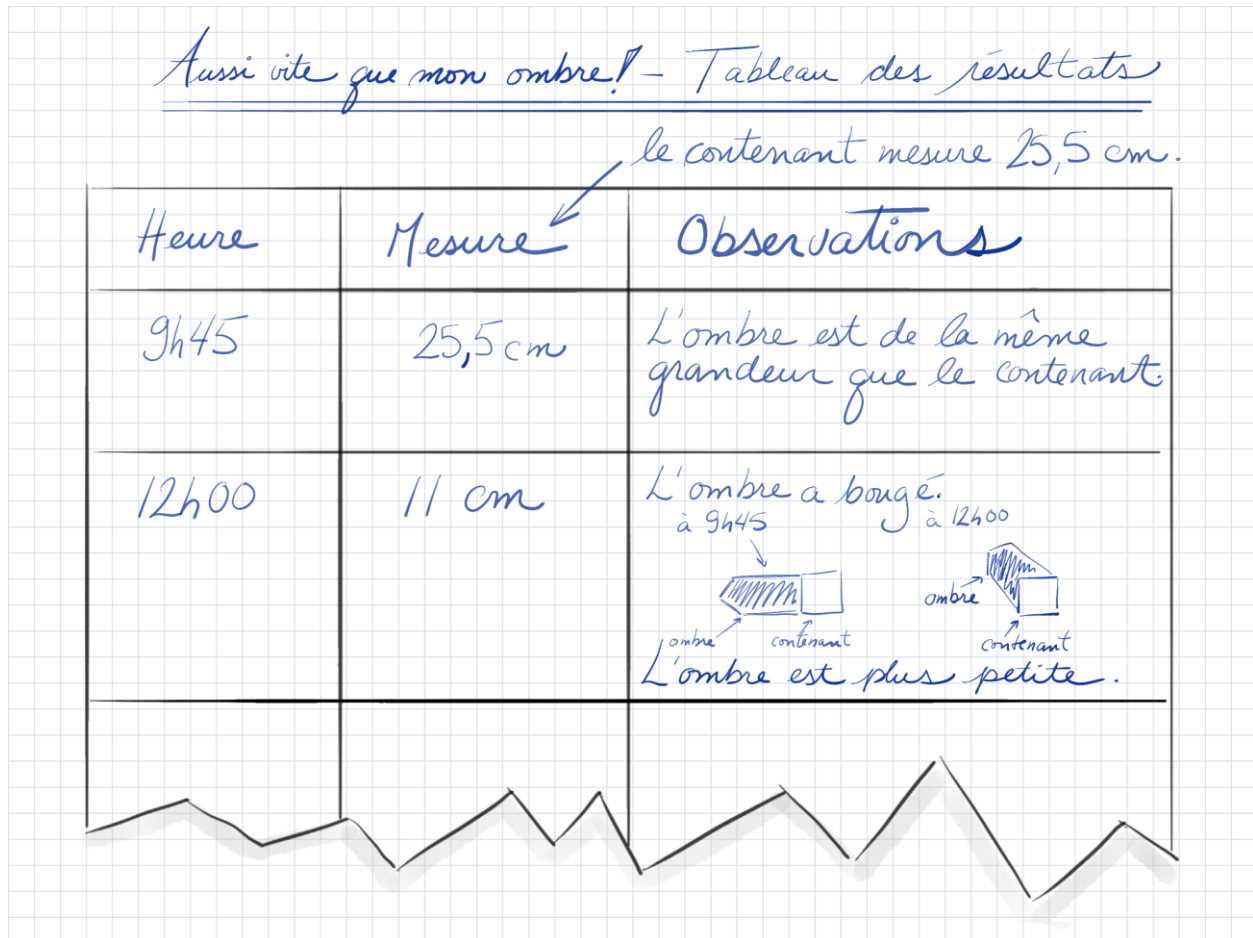 Aussi vite que mon ombre! – Tableau des résultats
le contenant mesure 25,5 cm.
Heure Mesure Observations
9h45 25,5 cm L'ombre est de la même
grandeur que le contenant.
12h00 11 cm L'ombre a bougé.
à 9h45 à 12h00
ombre
ombre contenant contenant
L'ombre est plus petite.